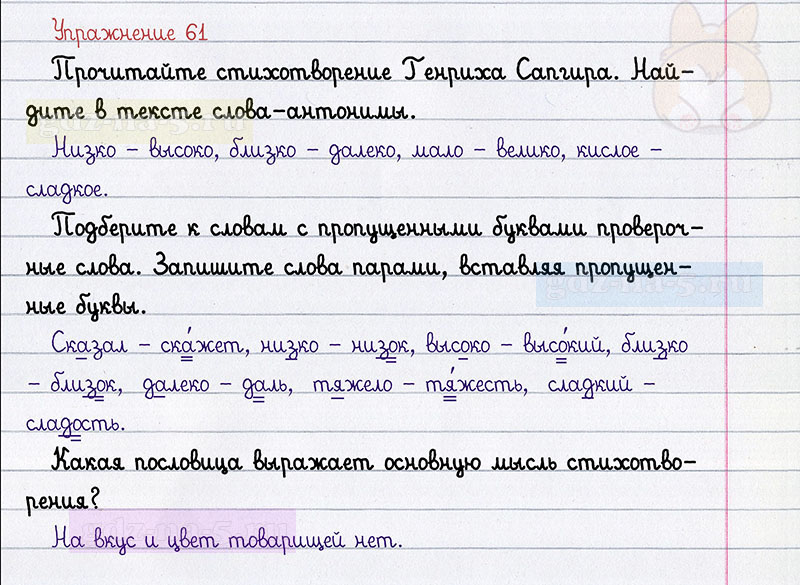 Упражнение 61
Прочитайте стихотворение Генриха Сапгира. Най-
дите в тексте слова-антонимы.
Низко – высоко, близко – далеко, мало – велико, кислое –
сладкое.
Подберите к словам с пропущенными буквами провероч-
ные слова. Запишите слова парами, вставляя пропущен-
ные буквы.
Сказал – ска́жет, низко – низок, высоко – высо́кий, близко
– близок, далеко – даль, тяжело – тя́жесть, сладкий –
сладость.
Какая пословица выражает основную мысль стихотво-
рения?
На вкус и цвет товарищей нет.
gdz-na-5.ru
gdz-na-5.ru
gdz-na-5.ru